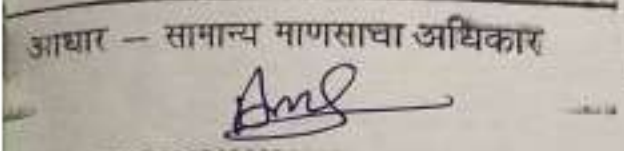 आधार – सामान्य माणसाचा अधिकार